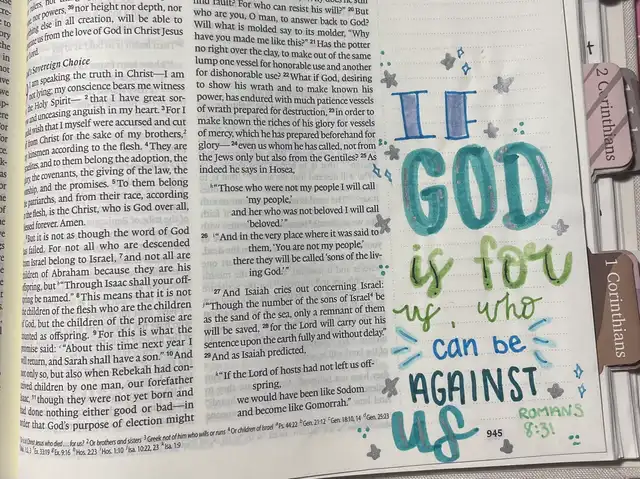 nor powers, 39 nor height nor depth, nor
else in all creation, will be able to
us from the love of God in Christ Jesus
Sovereign Choice
am speaking the truth in Christ—I am
not lying; my conscience bears me witness
Holy Spirit— 2 that I have great sor-
and unceasing anguish in my heart. 3 For I
wish that I myself were accursed and cut
from Christ for the sake of my brothers,
kinsmen according to the flesh. 4 They are
and to them belong the adoption, the
the covenants, the giving of the law, the
and the promises. 5 To them belong
patriarchs, and from their race, according
the flesh, is the Christ, who is God over all,
blessed forever. Amen.
But it is not as though the word of God
failed. For not all who are descended
from Israel belong to Israel, 7 and not all are
children of Abraham because they are his
offspring, but "Through Isaac shall your off-
spring be named." 8 This means that it is not
the children of the flesh who are the children
of God, but the children of the promise are
counted as offspring. 9 For this is what the
promise said: "About this time next year I
will return, and Sarah shall have a son." 10 And
not only so, but also when Rebekah had con-
ceived children by one man, our forefather
Isaac, 11 though they were not yet born and
had done nothing either good or bad—in
order that God's purpose of election might
find fault? For who can resist his will?" 20 But
who are you, O man, to answer back to God?
Will what is molded say to its molder, "Why
have you made me like this?" 21 Has the potter
no right over the clay, to make out of the same
lump one vessel for honorable use and another
for dishonorable use? 22 What if God, desiring
to show his wrath and to make known his
power, has endured with much patience vessels
of wrath prepared for destruction, 23 in order to
make known the riches of his glory for vessels
of mercy, which he has prepared beforehand for
glory— 24 even us whom he has called, not from
the Jews only but also from the Gentiles? 25 As
indeed he says in Hosea,
"Those who were not my people I will call
'my people,'
and her who was not beloved I will call
'beloved.'"
26 "And in the very place where it was said to
them, 'You are not my people,'
there they will be called 'sons of the liv-
ing God.'"
27 And Isaiah cries out concerning Israel:
"Though the number of the sons of Israel be
as the sand of the sea, only a remnant of them
will be saved, 28 for the Lord will carry out his
sentence upon the earth fully and without delay."
29 And as Isaiah predicted,
"If the Lord of hosts had not left us off-
spring,
we would have been like Sodom
and become like Gomorrah."
2 Or brothers and sisters 3 Greek not of him who wills or runs 4 Or children of Israel
945
IF
GOD
is for
us, who
can be
AGAINST
us
ROMANS
8:31
2 Corinthians
1 Corinthians